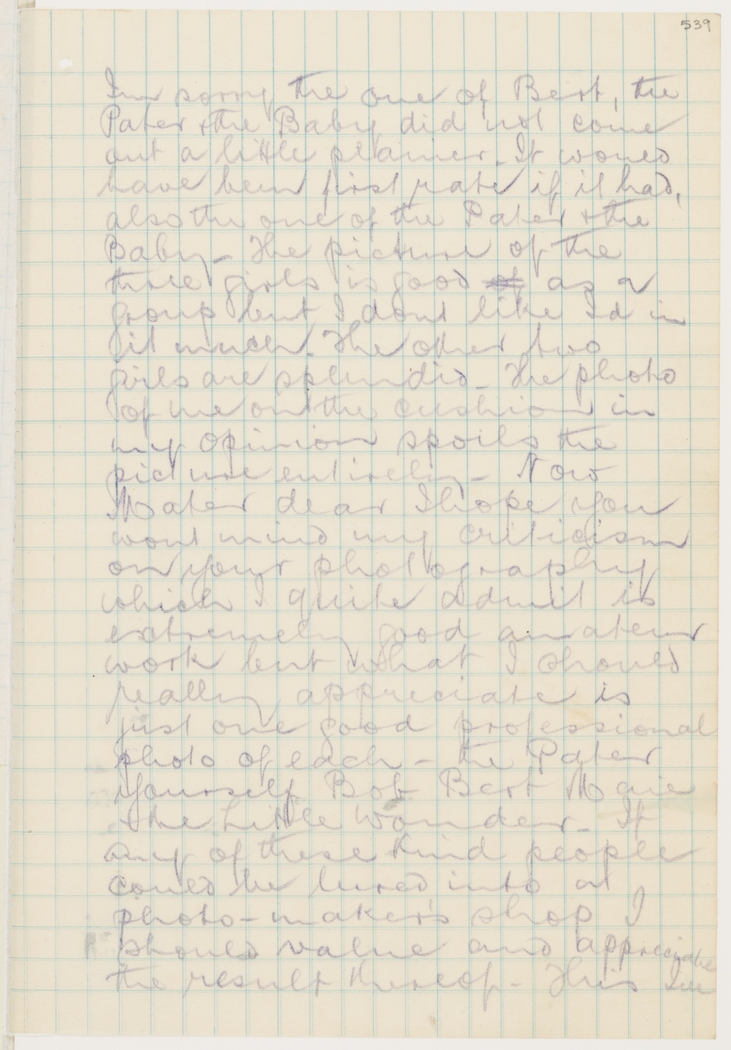 539
I'm sorry the one of Bert, the
Pater & the Baby did not come
out a little plainer. It would
have been first rate if it had,
also the one of the Pater & the
Baby - The picture of the
three girls is good as a
group but I dont like Id in
it much. The other two
girls are splendid - The photo
of me on the cushion in
my opinion spoils the
picture entirely - Now
Mater dear I hope you
wont mind my criticism
on your photography
which I quite admit is
extremely good amateur
work but what I should
really appreciate is
just one good professional
photo of each - the Pater
yourself Bob Bert Marie
& the Little Wonder - If
any of these kind people
could be lured into a
photo-maker's shop I
should value and appreciate
the result thereof - This I'm